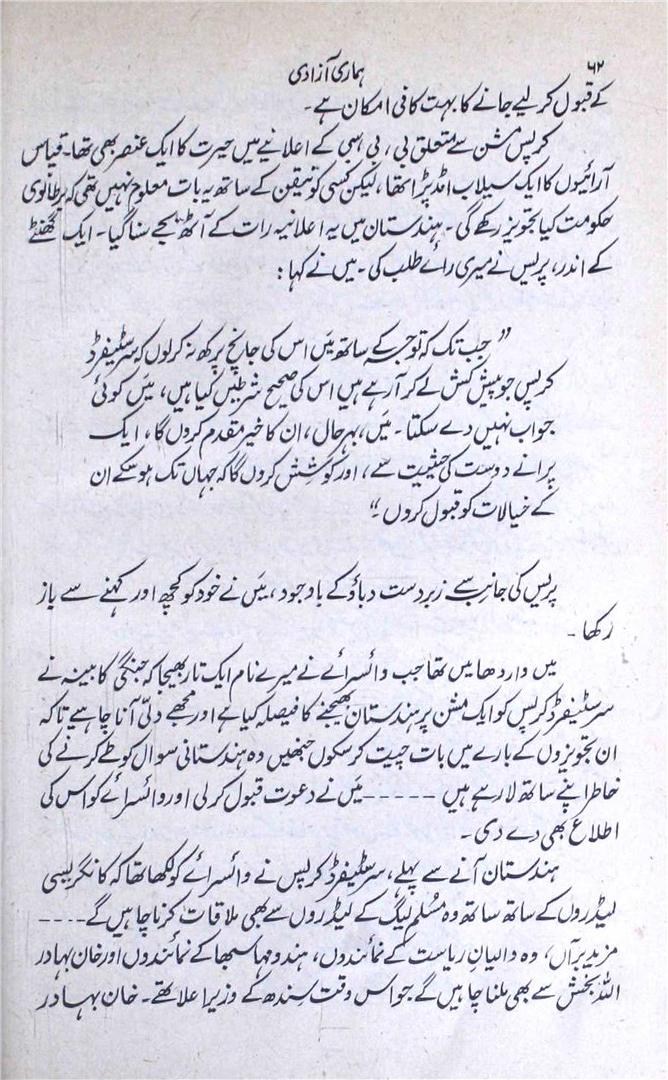 ۶۲
ہماری آزادی
کے قبول کر لیے جانے کا بہت کافی امکان ہے۔
کرپس مشن سے متعلق بی، بی سی کے اعلانیے میں حیرت کا ایک عنصر بھی تھا۔ قیاس
آرائیوں کا ایک سیلاب امڈ پڑا تھا، لیکن کسی کو تیقن کے ساتھ یہ بات معلوم نہیں تھی کہ برطانوی
حکومت کیا تجویز رکھے گی۔ ہندستان میں یہ اعلانیہ رات کے آٹھ بجے سنا گیا۔ ایک گھنٹے
کے اندر، پریس نے میری رائے طلب کی۔ میں نے کہا:
”جب تک کہ توجہ کے ساتھ میں اس کی جانچ پرکھ نہ کر لوں کہ سر سٹیفرڈ
کرپس جو پیش کش لے کر آ رہے ہیں اس کی صحیح شرطیں کیا ہیں، میں کوئی
جواب نہیں دے سکتا۔ میں، بہر حال، ان کا خیر مقدم کروں گا، ایک
پرانے دوست کی حیثیت سے، اور کوشش کروں گا کہ جہاں تک ہو سکے ان
کے خیالات کو قبول کروں۔“
پریس کی جانب سے زبردست دباؤ کے باوجود، میں نے خود کو کچھ اور کہنے سے باز
رکھا۔
میں واردھا میں تھا جب وائسرائے نے میرے نام ایک تار بھیجا کہ جنگی کابینہ نے
سر سٹیفرڈ کرپس کو ایک مشن پر ہندستان بھیجنے کا فیصلہ کیا ہے اور مجھے دلّی آنا چاہیے تاکہ
ان تجویزوں کے بارے میں بات چیت کر سکوں جنھیں وہ ہندستانی سوال کو طے کرنے کی
خاطر اپنے ساتھ لا رہے ہیں ----- میں نے دعوت قبول کر لی اور وائسرائے کو اس کی
اطلاع بھی دے دی۔
ہندستان آنے سے پہلے، سر سٹیفرڈ کرپس نے وائسرائے کو لکھا تھا کہ کانگریسی
لیڈروں کے ساتھ ساتھ وہ مسلم لیگ کے لیڈروں سے بھی ملاقات کرنا چاہیں گے ----
مزید برآں، وہ والیانِ ریاست کے نمائندوں، ہندو مہا سبھا کے نمائندوں اور خان بہادر
اللہ بخش سے بھی ملنا چاہیں گے جو اس وقت سندھ کے وزیر اعلا تھے۔ خان بہادر